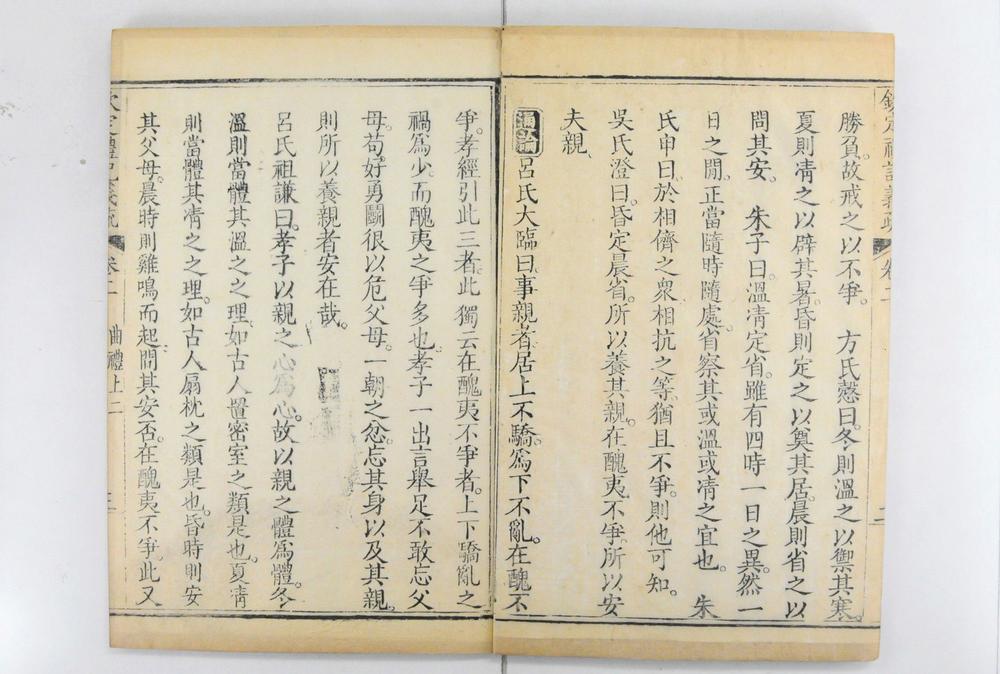 欽定禮記義疏 卷二
勝負。故戒之以不爭。 方氏慤曰。冬則溫之以禦其寒。
夏則凊之以辟其暑。昏則定之以奠其居。晨則省之以
問其安。 朱子曰。溫凊定省。雖有四時一日之異。然一
日之閒。正當隨時隨處。省察其或溫或凊之宜也。 朱
氏申曰。於相儕之衆。相抗之等。猶且不爭。則他可知。
吳氏澄曰。昏定晨省。所以養其親。在醜夷不爭。所以安
夫親。
通論 呂氏大臨曰。事親者。居上不驕。爲下不亂。在醜不
爭。孝經引此三者。此獨云在醜夷不爭者。上下驕亂之
禍爲少。而醜夷之爭多也。孝子一出言舉足不敢忘父
母。苟好勇鬬很以危父母。一朝之忿忘其身以及其親。
則所以養親者安在哉。
呂氏祖謙曰。孝子以親之心爲心。故以親之體爲體。冬
溫則當體其溫之之理。如古人置密室之類是也。夏凊
則當體其凊之之理。如古人扇枕之類是也。昏時則安
其父母。晨時則雞鳴而起。問其安否。在醜夷不爭。此又
欽定禮記義疏 卷二 曲禮上二